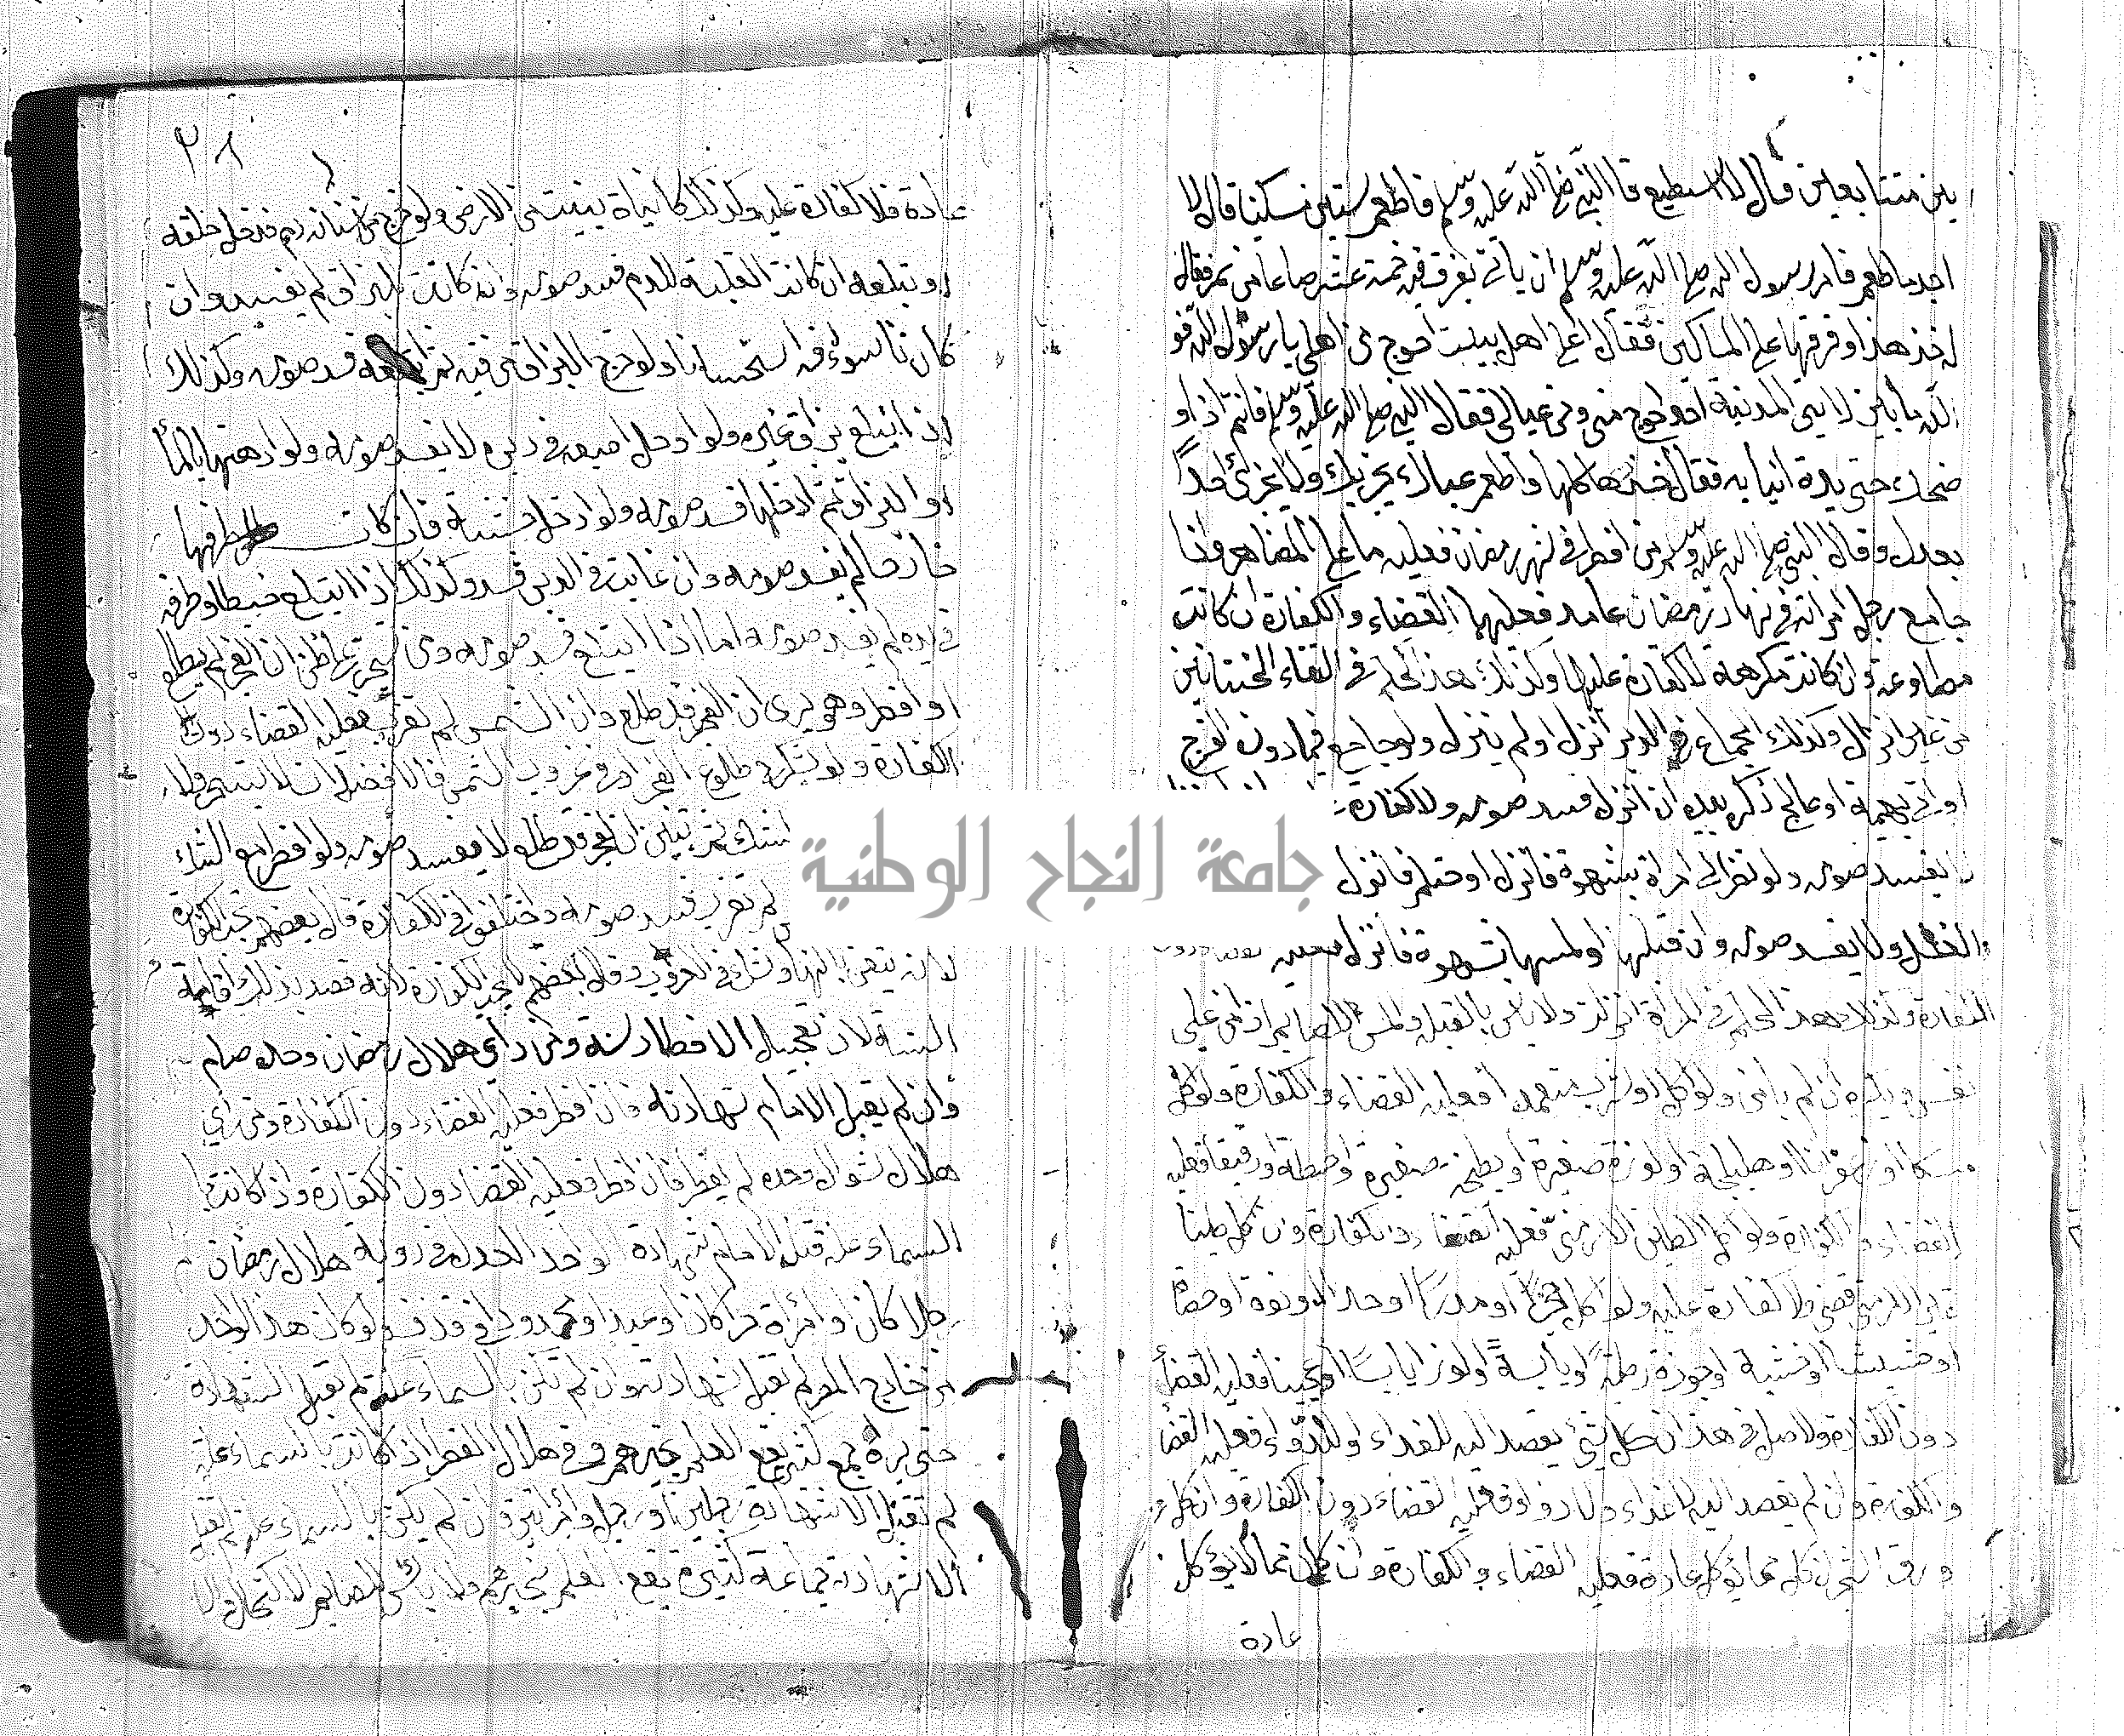 ين متتابعين قال لا استطيع قال النبي صلى الله عليه وسلم فاطعم ستين مسكينا قال لا
اجد ما اطعم فامر رسول الله صلى الله عليه وسلم ان ياتى بفرق فيه خمسة عشر صاعا من تمر فقال
له خذ هذا وفرقها على المساكين فقال اعلى اهل بيت احوج من اهلي يا رسول الله فو
الله ما بين لابتي المدينة احد احوج مني ومن عيالي فقال النبي صلى الله عليه وسلم فانتم اذا و
ضحك حتى بدة انيابه فقال خذها كلها واطعم عيالك يجزيك ولا يجزئ احدا
بعدك وقال النبي صلى الله عليه وسلم من افطر في نهر رمضان فعليه ما على المضاهر واذا
جامع رجل امراته في نهار رمضان عامد فعليهما القضاء والكفارة ان كانت
مطاوعة وان كانت مكرهة لا كفارة عليها وكذلك هذا الحكم في التقاء الختانين
من غير انزال وكذلك الجماع في الدبر انزل او لم ينزل ولو جامع فيما دون الفرج
او اتى بهيمة او عالج ذكره بيده ان انزل فسد صومه ولا كفارة
لا يفسد صومه ولو نظر الى امراة بشهوة فانزل او حتلم فانزل
الغسل ولا يفسد صومه وان قبلها او لمسها بشهوة فانزل فعليه
الكفارة وكذلك هذا الحكم في المراة انزلت ولا باس بالقبلة والمس للصايم اذا امن على
نفسه ويكره ان لم يامن ولو اكل او شرب متعمدا فعليه القضاء والكفارة ولو اكل
مسكا او زعفرانا او هليلجة او لوزة صغيرة او بطيخة صغيرة او حنطة او دقيقا فعليه
القضاء والكفارة ولو اكل الطين الارمني فعليه القضاء والكفارة وان اكل طينا
غير الارمني قضى ولا كفارة عليه ولو اكل حجرا او مدرا او حديدا او نوة او حصاة
او حشيشا او خشبة او جوزة رطبة او يابسة او لوزا يابسا او عجينا فعليه القضأ
دون الكفارة والاصل في هذا ان كل شيئ يقصد اليه للغداء او للدواء فعليه القضا
والكفارة وان لم يقصد اليه لا غداء ولا دواء فعليه القضاء دون الكفارة وان اكل
ورق الشجر ان كان مما يؤكل عادة فعليه القضاء والكفارة وان كان مما لا يؤكل
عادة
٢٨
عادة فلا كفارة عليه وكذلك كل نباة ينبت في الارض ولو خرج من اسنانه دم فدخل حلقه
او ابتلعه ان كانت الغلبة للدم فسد صومه وان كانت للبزاق لم يفسد وان
كان نا سواء فسد استحسانا ولو خرج البزاق من فيه ثم ابتلعه فسد صومه وكذلك
اذا ابتلع بزاق غيره ولو ادخل اصبعه في دبره لا يفسد صومه ولو ادهنها بالمأ
او البزاق ثم ادخلها فسد صومه ولو ادخل خشبة فان كان طرفها
خارجا لم يفسد صومه وان غابت في الدبر فسد وكذلك اذا ابتلع خيطا وطرفه
في يده لم يفسد صومه اما اذا ابتلع فسد صومه ومن تسحر على ظن ان الفجر لم يطلع
او افطر وهو يرى ان الفجر قد طلع وان الشمس لم تغرب فعليه القضاء دون
الكفارة ولو شك في طلوع الفجر او في غروب الشمس فالافضل ان لا يتسحر ولا
الشك ثم تبين ان الفجر قد طلع لا يفسد صومه ولو افطر مع الشك
لم تغرب فسد صومه واختلفوا في الكفارة قال بعضهم تجب الكفارة
لانه تيقن بالنهار وشك في الغروب وقال بعضهم لا تجب الكفارة لانه قصد بذلك اقامة
السنة لان تعجيل الافطار سنة ومن راى هلال رمضان وحده صام
وان لم يقبل الامام شهادته فان افطر فعليه القضاء دون الكفارة ومن راي
هلال شوال وحده لم يفطر فان افطر فعليه القضا دون الكفارة واذا كانت با
السماء علة قبل الامام شهادة الواحد العدل في روية هلال رمضان
رجلا كان او امراة حرا كان او عبدا او محدودا في قذف ولو كان هذا الواحد
من خارج المصر لم تقبل شهادته وان لم تكن بالسماء علة لم تقبل الشهادة
حتى يراه جمع كثير يقع العلم بخبرهم وفي هلال الفطر اذا كانت بالسماء علة
لم تقبل الا شهادة رجلين او رجل وامراتين وان لم يكن بالسماء علة لم تقبل
الا شهادة جماعة كثيرة يقع العلم بخبرهم ولا باس للصايم الاكتحال ولا
جامعة النجاح الوطنية